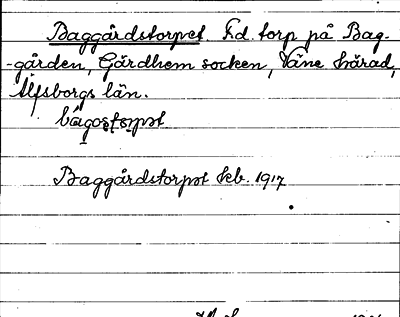 Baggårdstorpet. F.d. torp på Bag-
-gården, Gärdhem socken, Väne härad,
Älfsborgs län.
bågostorpet
Baggårdstorpet kb. 1917